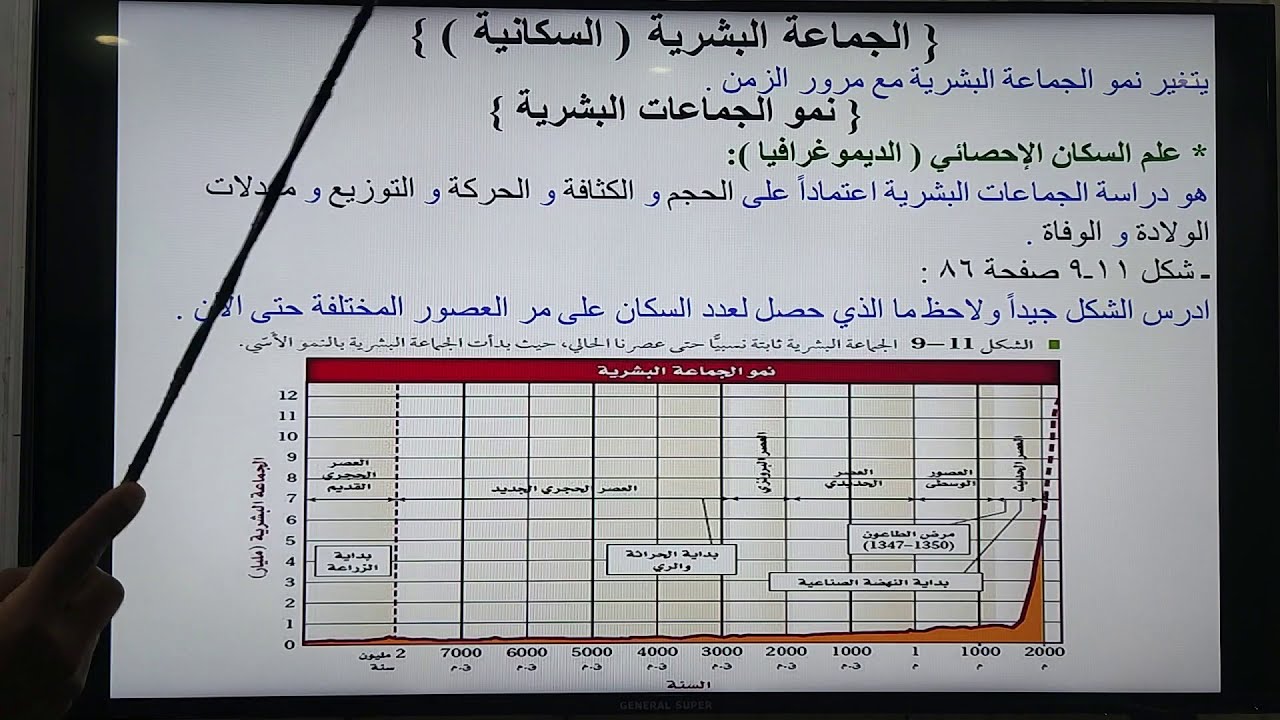 { الجماعة البشرية ( السكانية ) }
يتغير نمو الجماعة البشرية مع مرور الزمن .
{ نمو الجماعات البشرية }
* علم السكان الإحصائي ( الديموغرافيا ):
هو دراسة الجماعات البشرية اعتماداً على الحجم و الكثافة و الحركة و التوزيع و معدلات
الولادة و الوفاة .
- شكل ١١-٩ صفحة ٨٦ :
ادرس الشكل جيداً ولاحظ ما الذي حصل لعدد السكان على مر العصور المختلفة حتى الآن .
الشكل 11–9 الجماعة البشرية ثابتة نسبيًّا حتى عصرنا الحالي، حيث بدأت الجماعة البشرية بالنمو الأسّي.
نمو الجماعة البشرية
الجماعة البشرية (مليار)
12
11
10
9
8
7
6
5
4
3
2
1
0
العصر الحجري القديم
العصر الحجري الجديد
العصر البرونزي
العصر الحديدي
العصور الوسطى
العصر الحديث
بداية الزراعة
بداية الحراثة والري
مرض الطاعون (1347–1350)
بداية النهضة الصناعية
2 مليون سنة
7000 ق.م
6000 ق.م
5000 ق.م
4000 ق.م
3000 ق.م
2000 ق.م
1000 ق.م
1 م
1000 م
2000 م
السنة
GENERAL SUPER